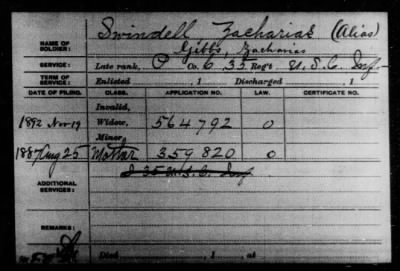 Swindell Zacharias (Alias)
NAME OF SOLDIER: Gibbs, Zacharias
SERVICE: Late rank, P Co. 6, 35 Regt. U.S.C. Inf.
TERM OF SERVICE: Enlisted , 1 Discharged , 1
DATE OF FILING. CLASS. APPLICATION NO. LAW. CERTIFICATE NO.
Invalid,
1892 Nov 19 Widow, 564792 0
Minor,
1887 Aug 25 Mother 359820 0
ADDITIONAL SERVICES: I 35 U.S.C. Inf
REMARKS:
Died , 1 , at